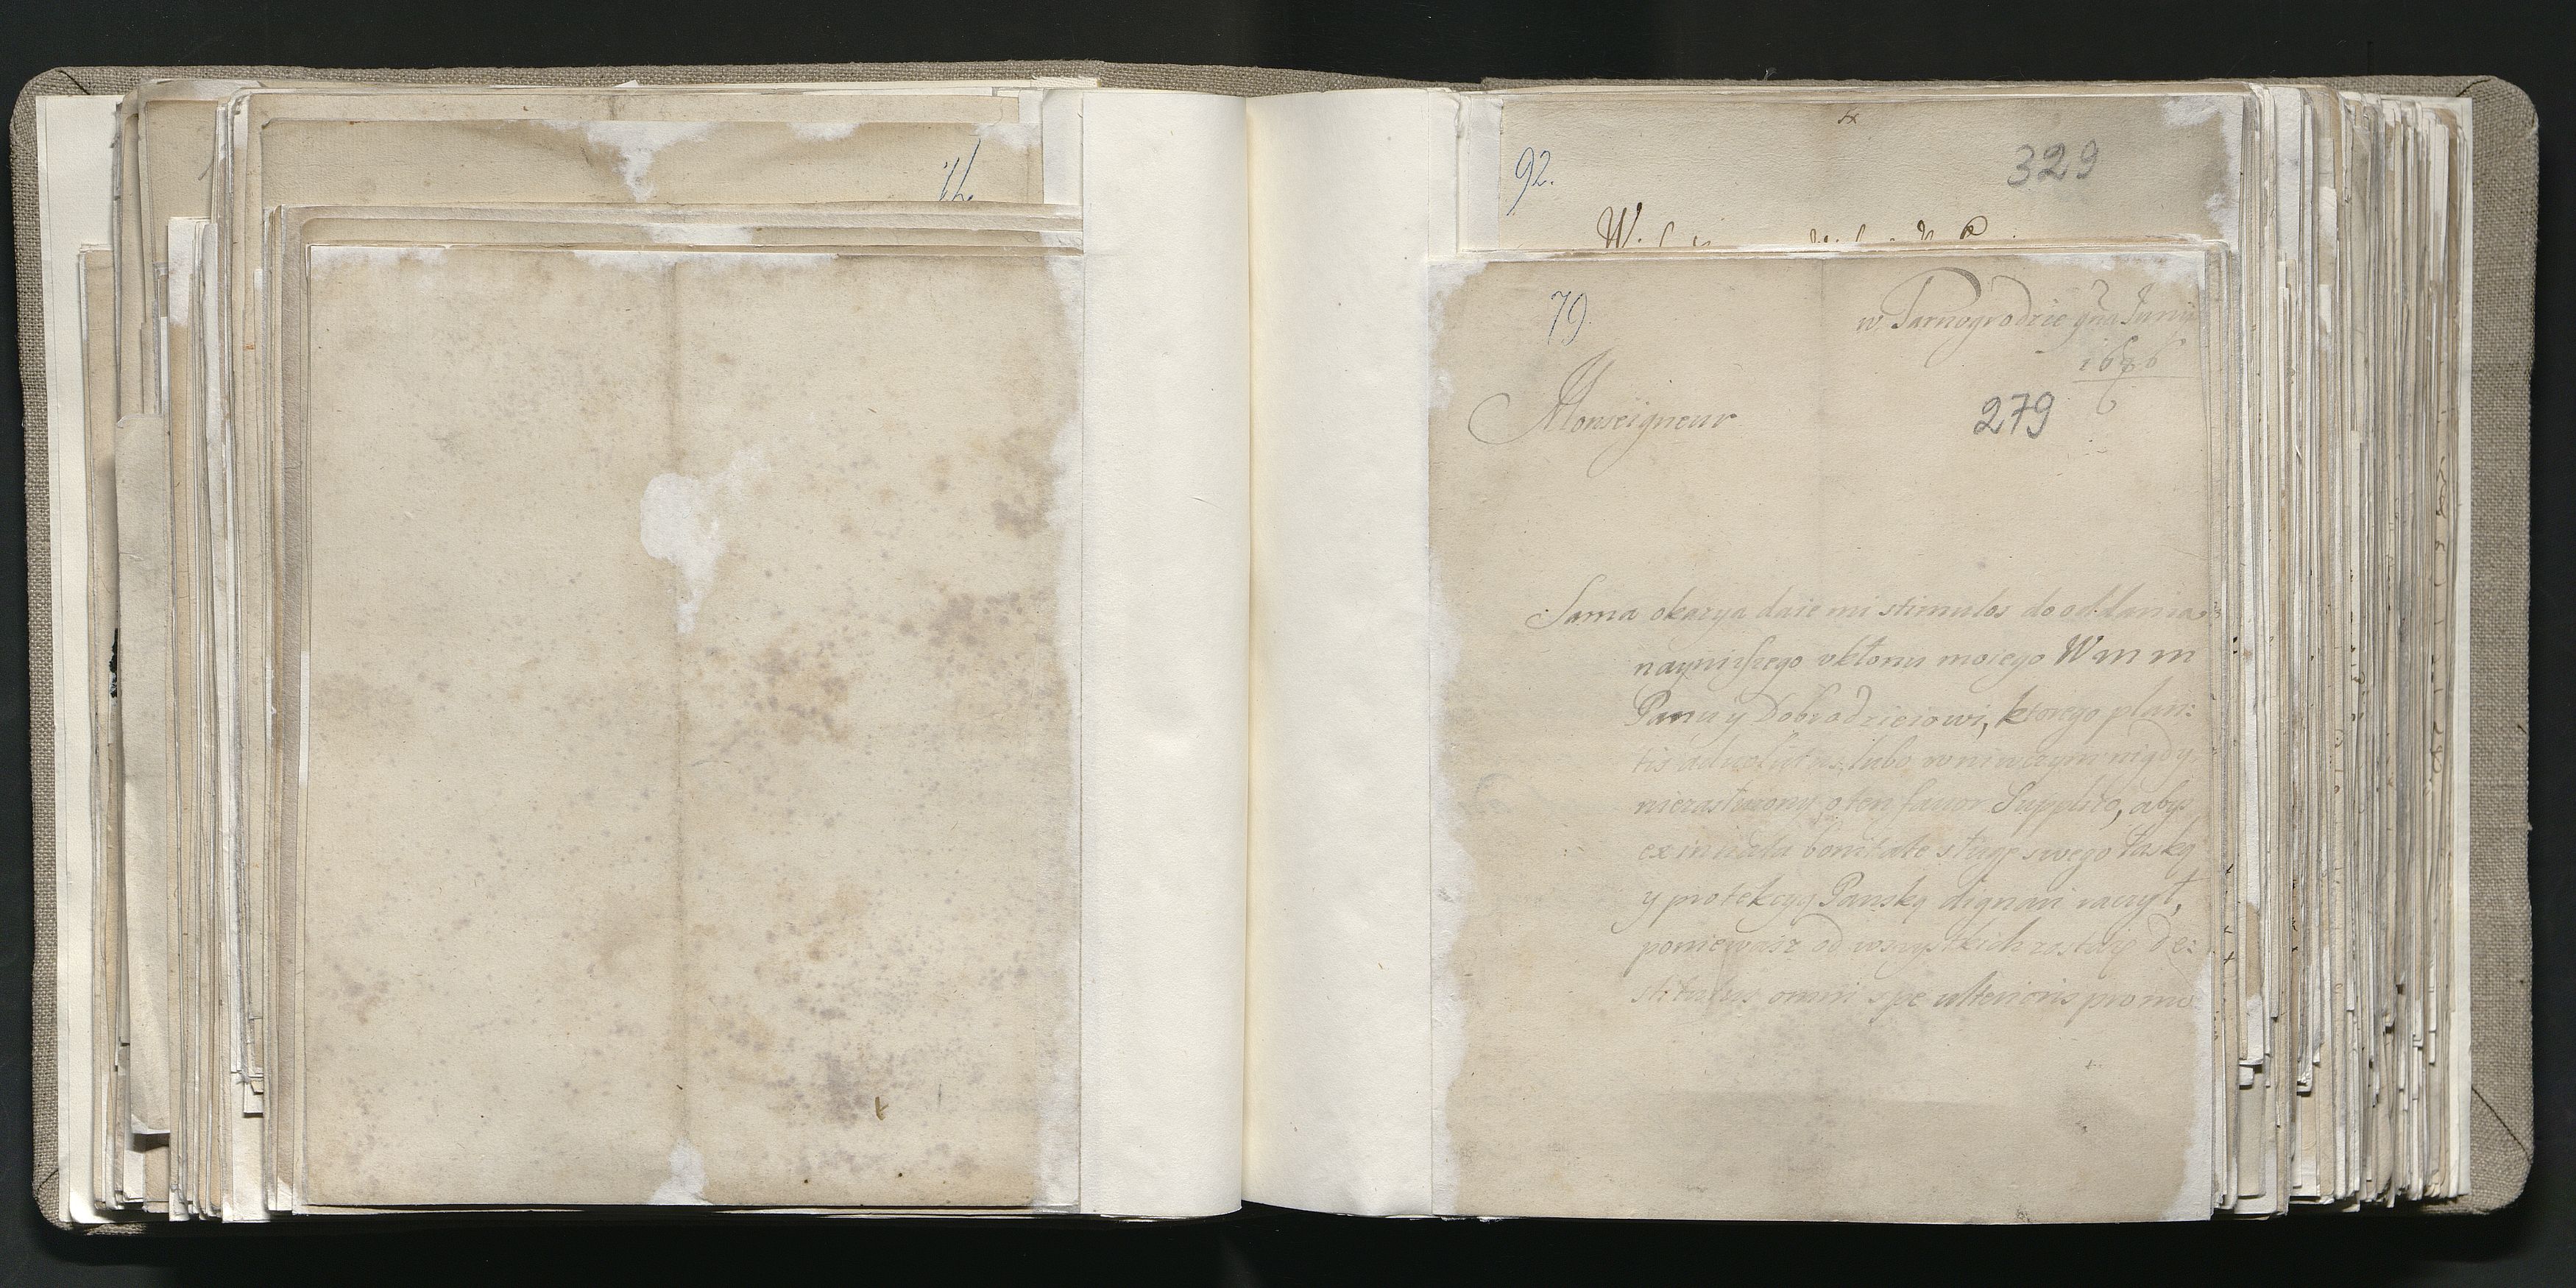 92.
329
79.
w Tarnogrodzie 9na Junij
1686
6
279
Monseigneur
Sama okazya daie mi stimulos do oddania
naynizszego vkłonu moiego W m m
Panu y Dobrodzieiowi, ktorego plan:
tis aduolutus, lubo w niwczym nigdy
niezasłuzony, o ten fauor Supplito, abyś
ex innata bonitate sługę swego łaską
y protekcyą Panską dignari raczył,
poniewasz od wszystkich zostaię de:
stitutus omni spe ulterioris promo